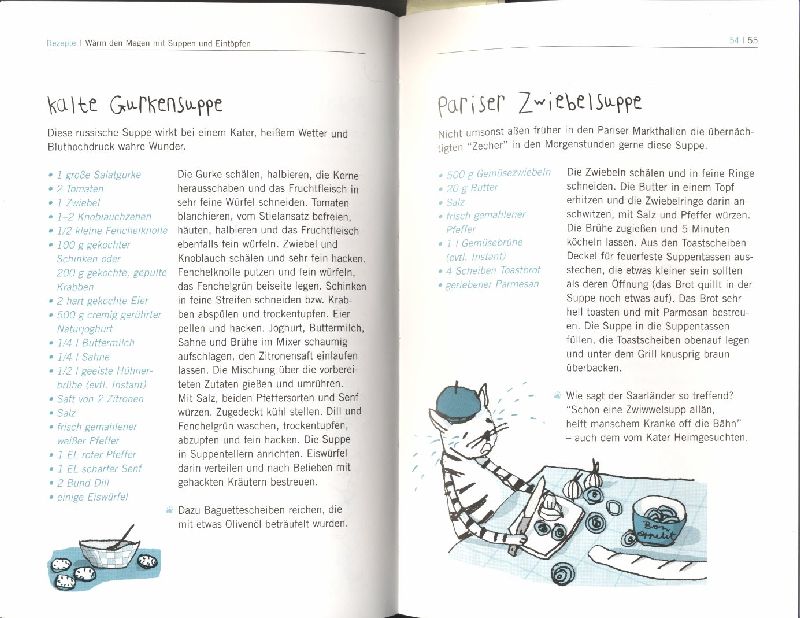 Rezepte | Wärm den Magen mit Suppen und Eintöpfen
kalte Gurkensuppe
Diese russische Suppe wirkt bei einem Kater, heißem Wetter und
Bluthochdruck wahre Wunder.
• 1 große Salatgurke
• 2 Tomaten
• 1 Zwiebel
• 1–2 Knoblauchzehen
• 1/2 kleine Fenchelknolle
• 100 g gekochter
Schinken oder
200 g gekochte, gepulte
Krabben
• 2 hart gekochte Eier
• 500 g cremig gerührter
Naturjoghurt
• 1/4 l Buttermilch
• 1/4 l Sahne
• 1/2 l geeiste Hühner-
brühe (evtl. Instant)
• Saft von 2 Zitronen
• Salz
• frisch gemahlener
weißer Pfeffer
• 1 EL roter Pfeffer
• 1 EL scharfer Senf
• 2 Bund Dill
• einige Eiswürfel
Die Gurke schälen, halbieren, die Kerne
herausschaben und das Fruchtfleisch in
sehr feine Würfel schneiden. Tomaten
blanchieren, vom Stielansatz befreien,
häuten, halbieren und das Fruchtfleisch
ebenfalls fein würfeln. Zwiebel und
Knoblauch schälen und sehr fein hacken.
Fenchelknolle putzen und fein würfeln,
das Fenchelgrün beiseite legen. Schinken
in feine Streifen schneiden bzw. Krab-
ben abspülen und trockentupfen. Eier
pellen und hacken. Joghurt, Buttermilch,
Sahne und Brühe im Mixer schaumig
aufschlagen, den Zitronensaft einlaufen
lassen. Die Mischung über die vorberei-
teten Zutaten gießen und umrühren.
Mit Salz, beiden Pfeffersorten und Senf
würzen. Zugedeckt kühl stellen. Dill und
Fenchelgrün waschen, trockentupfen,
abzupfen und fein hacken. Die Suppe
in Suppentellern anrichten. Eiswürfel
darin verteilen und nach Belieben mit
gehackten Kräutern bestreuen.
Dazu Baguettescheiben reichen, die
mit etwas Olivenöl beträufelt wurden.
54 | 55
pariser Zwiebelsuppe
Nicht umsonst aßen früher in den Pariser Markthallen die übernäch-
tigten "Zecher" in den Morgenstunden gerne diese Suppe.
• 500 g Gemüsezwiebeln
• 20 g Butter
• Salz
• frisch gemahlener
Pfeffer
• 1 l Gemüsebrühe
(evtl. Instant)
• 4 Scheiben Toastbrot
• geriebener Parmesan
Die Zwiebeln schälen und in feine Ringe
schneiden. Die Butter in einem Topf
erhitzen und die Zwiebelringe darin an-
schwitzen, mit Salz und Pfeffer würzen.
Die Brühe zugießen und 5 Minuten
köcheln lassen. Aus den Toastscheiben
Deckel für feuerfeste Suppentassen aus-
stechen, die etwas kleiner sein sollten
als deren Öffnung (das Brot quillt in der
Suppe noch etwas auf). Das Brot sehr
hell toasten und mit Parmesan bestreu-
en. Die Suppe in die Suppentassen
füllen, die Toastscheiben obenauf legen
und unter dem Grill knusprig braun
überbacken.
Wie sagt der Saarländer so treffend?
"Schon eine Zwiwwelsupp allän,
helft manschem Kranke off die Bähn"
– auch dem vom Kater Heimgesuchten.
Bon
appetit